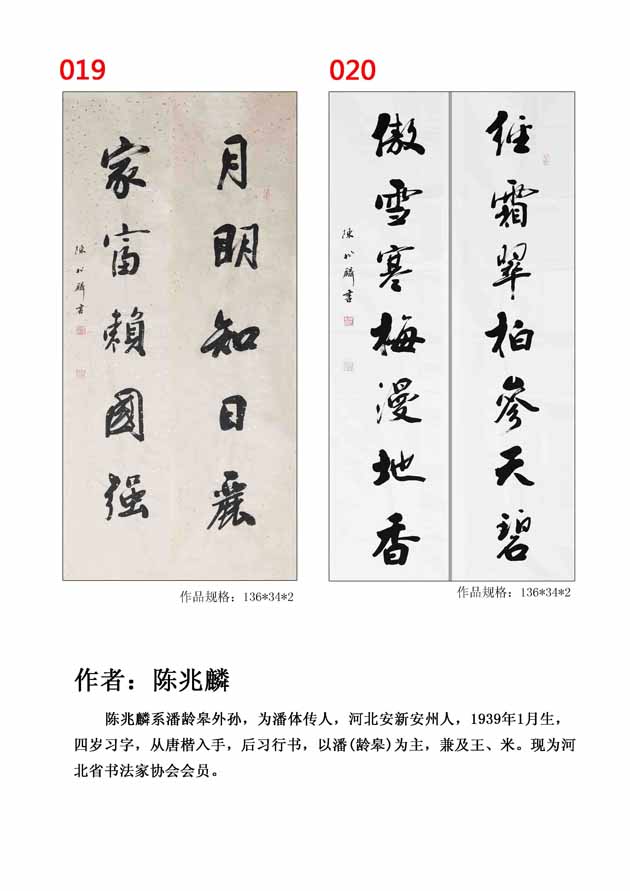 019
020
月明知日麗
家富賴國强
陳兆麟書
经霜翠柏参天碧
傲雪寒梅漫地香
陳兆麟書
作品规格：136*34*2
作品规格：136*34*2
作者：陈兆麟
陈兆麟系潘龄皋外孙，为潘体传人，河北安新安州人，1939年1月生，
四岁习字，从唐楷入手，后习行书，以潘(龄皋)为主，兼及王、米。现为河
北省书法家协会会员。